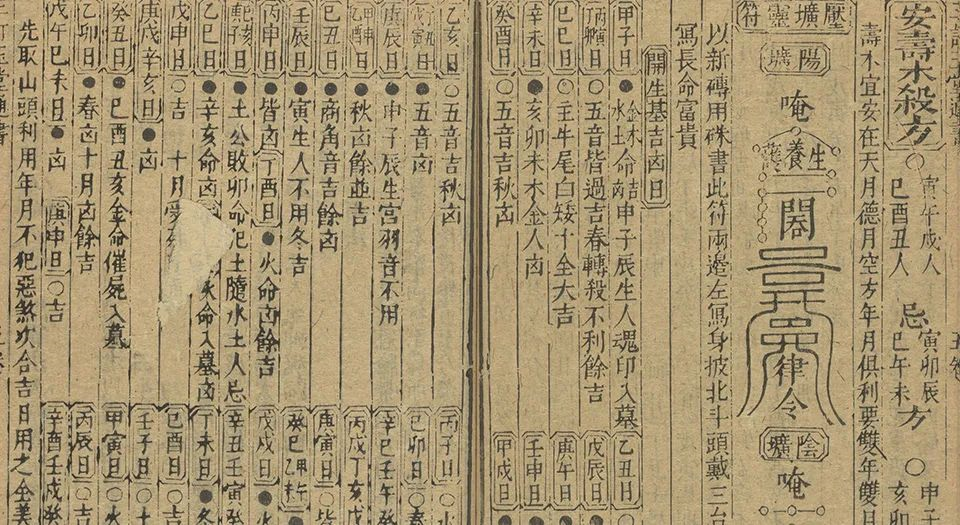 安壽木殺方○寅午戌人巳酉丑人忌寅卯辰巳午未方○申子亥卯
壽木宜安在天月德月空方年月俱利要雙年雙月
壓壙靈符
陽壙
唵
生養
律令
陰壙
唵
以新磚用硃書此符兩邊左寫身披北斗頭戴三台
寫長命富貴
開生基吉凶日
甲子日●金木水土命吉凶申子辰生人魂印入墓 乙丑日○
丙寅丁卯日○五音皆過吉春轉殺不利餘吉 戊辰日○
己巳日○壬牛尾白矮十全大吉 庚午日●
辛未日●亥卯未木金人凶 壬申日●
癸酉日○五音吉秋凶 甲戌日●
乙亥日○五音吉秋凶 丙子日○火
丁丑戊寅日●五音凶 己卯日○
庚辰日●申子辰生宮羽音不用 辛巳壬午癸
甲申乙酉日○秋凶餘並吉 丙戌丁亥
己丑日●商角音吉餘凶 庚寅日○皆
壬辰日●寅生人不用冬吉 癸巳甲午
丙申日●皆凶 丁酉日●火命凶餘吉 戊戌日●
日●土公敗卯命犯土隨水土人忌 辛丑壬寅癸
日●辛亥命凶 火命入墓凶 丁未日●冬
戊申日○吉 十月受 己酉日○吉
庚戌辛亥日●凶 壬子日○
癸丑日●巳酉丑亥金命催屍入墓 甲寅日○火
乙卯日●春凶十月凶餘吉 丙辰日○吉
戊午己未日●凶 庚申日○吉 辛酉壬戌癸
先取山頭利用年月不犯惡煞次合吉日用之全美